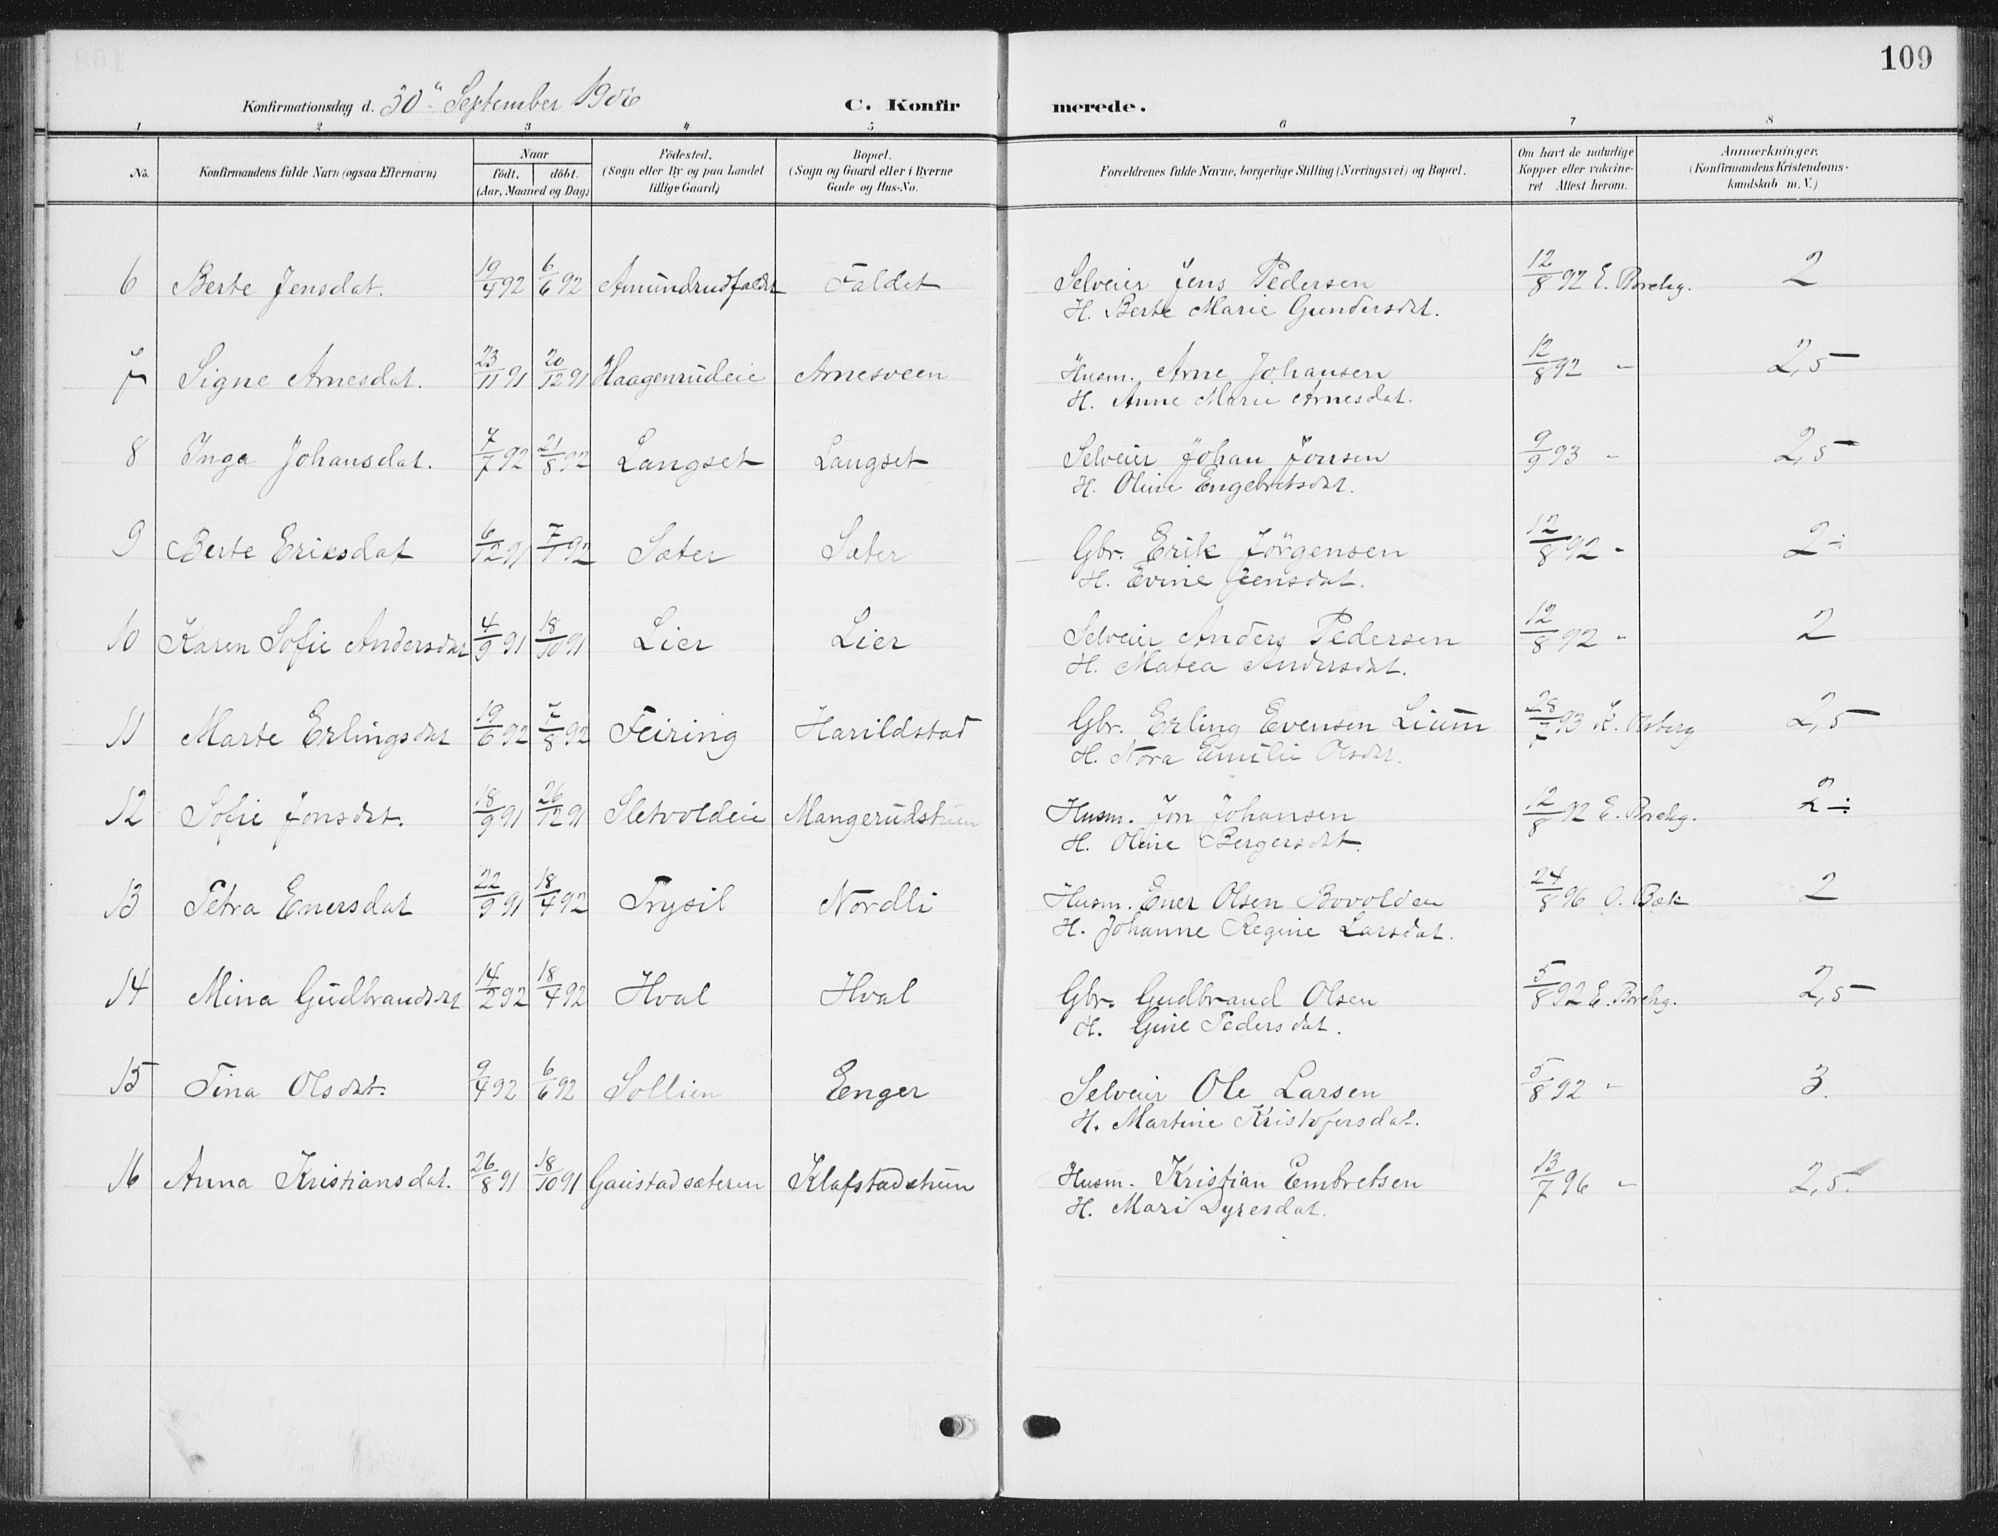 109
Konfirmationsdag d. 30" September 1906 C. Konfirmerede.
1 2 3 4 5 6 7 8
No. Konfirmandens fulde Navn (ogsaa Efternavn) Naar født. døbt. (Aar, Maaned og Dag) Fødested. (Sogn eller By og paa Landet tillige Gaard) Bopæl. (Sogn og Gaard eller i Byerne Gade og Hus-No. Forældrenes fulde Navne, borgerlige Stilling (Næringsvei) og Bopæl. Om havt de naturlige Kopper eller vakcineret Attest herom. Anmærkninger, (Konfirmandens Kristendomskundskab m. V.)
6 Berte Jensdat. 19/4 92 6/6 92 Amundrudfaldet Faldet Selveier Jens Pedersen 12/8 92 E. Borchg. 2
H. Berte Marie Gundersdat.
7 Signe Arnesdat. 23/11 91 20/12 91 Haagenrudeie Arnesveen Husm. Arne Johansen 12/8 92 " 2,5
H. Anne Marie Arnesdat.
8 Inga Johansdat. 7/7 92 21/8 92 Langset Langset Selveier Johan Jonsen 9/9 93 " 2,5
H. Oline Engebretsdat.
9 Berte Eriksdat 6/12 91 7/1 92 Sæter Sæter Gbr. Erik Jörgensen 12/8 92 " 2÷
H. Evine Jensdat.
10 Karen Sofie Andersdat 4/9 91 18/10 91 Lier Lier Selveier Anders Pedersen 12/8 92 " 2
H. Matea Andersdat.
11 Marte Erlingsdat 19/6 92 7/8 92 Feiring Harildstad Gbr. Erling Evensen Lium 28/7 93 K. Olsberg 2,5
H. Nora Emilie Olsdat.
12 Sofie Jonsdat. 18/9 91 26/12 91 Sletvoldeie Mangerudstuen Husm. Jon Johansen 12/8 92 E. Borchg. 2÷
H. Oline Bergersdat.
13 Petra Enersdat 22/9 91 18/4 92 Trysil Nordli Husm. Ener Olsen Bovolden 24/8 96 O. Bæk 2
H. Johanne Regine Larsdat.
14 Mina Gudbrandsdat 14/2 92 18/4 92 Hval Hval Gbr. Gudbrand Olsen 5/8 92 E. Borchg. 2,5
H. Gine Pedersdat.
15 Tina Olsdat. 9/4 92 6/6 92 Sollien Eenger Selveier Ole Larsen 5/8 92 " 3.
H. Martine Kristofersdat.
16 Anna Kristiansdat. 26/8 91 18/10 91 Gaustadsæteren Klafstadstuen Husm. Kristian Embretsen 13/7 96 " 2,5.
H. Mari Dyresdat.